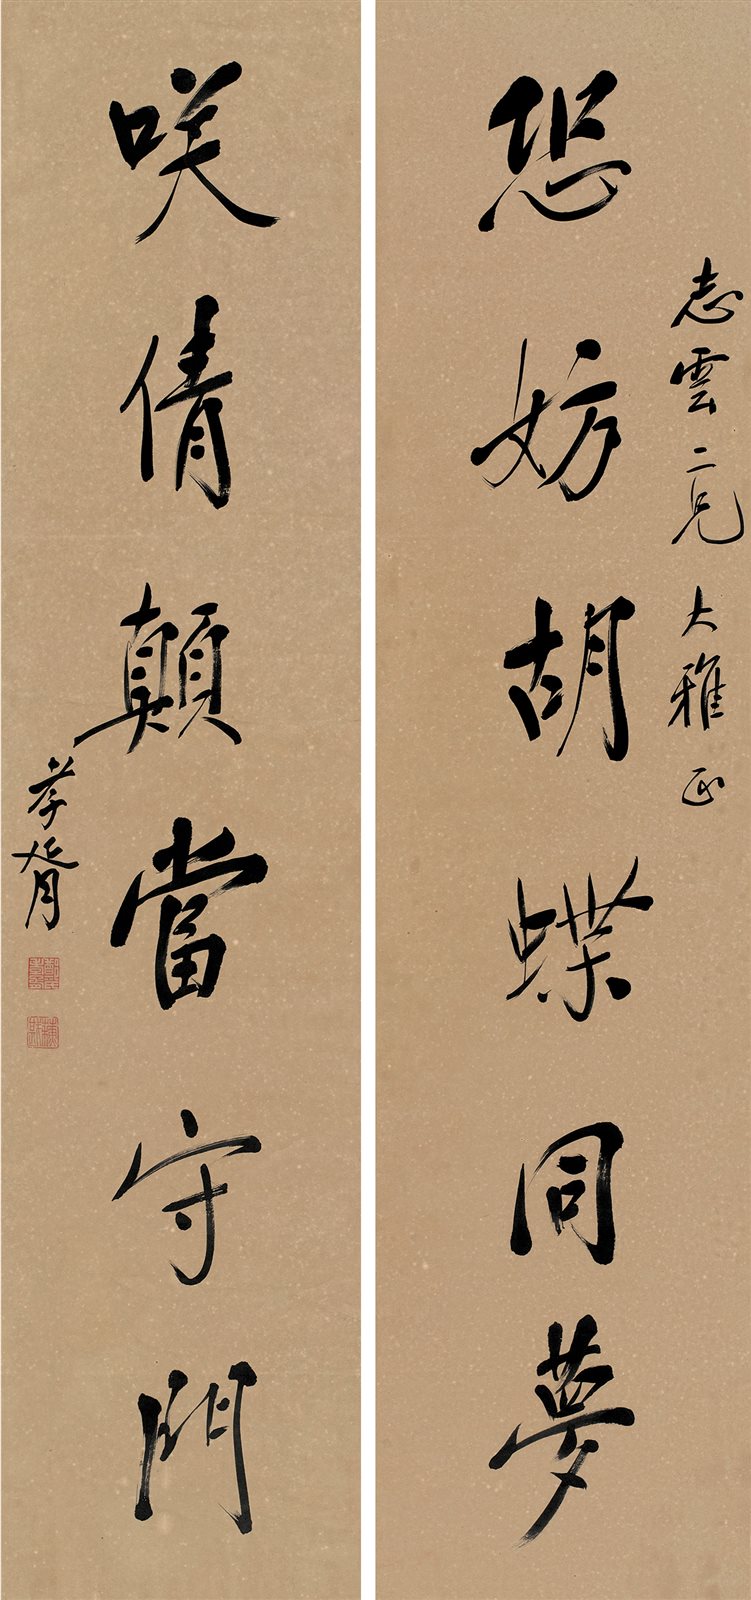 志雲二兄大雅正
恐妨胡蝶同夢
咲倩顛當守門
孝胥